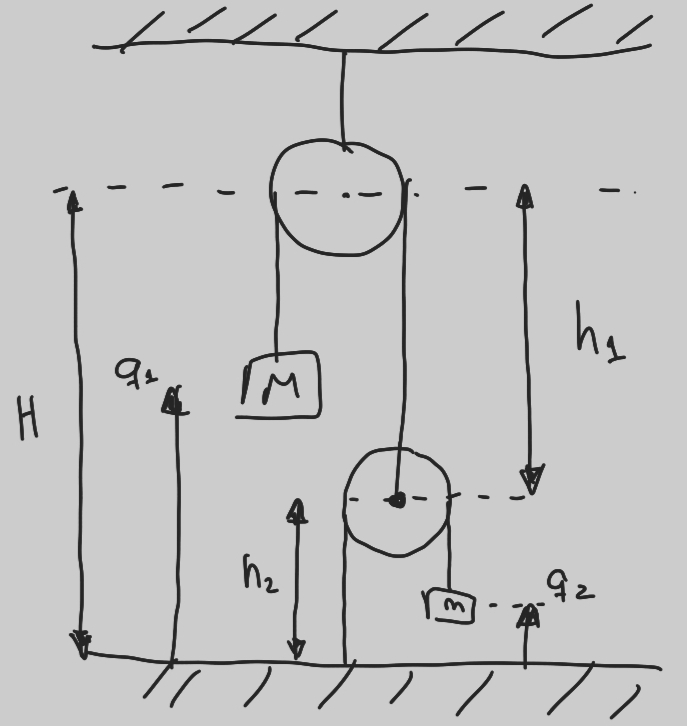 H
q₁
M
h₁
h₂
m
q₂